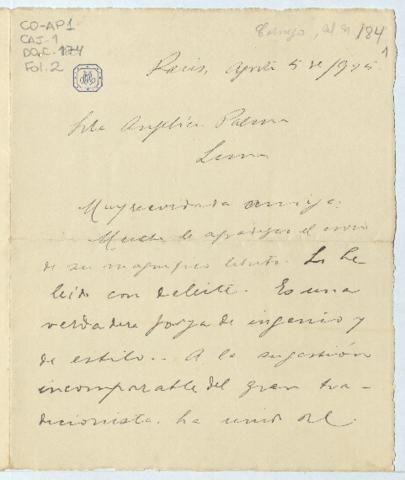 CO-AP1
CAJ-1
DOC. 184
Fol. 2
184
1
Paris, Abril 5 de 1925.
Srta Angélica Palma
Lima
Muy recordada amiga:
Mucho le agradezco el envío
de su magnífico libro. Lo he
leído con deleite. Es una
verdadera joya de ingenio y
de estilo.. A la sugestión
incomparable del gran tra-
dicionista. ha unido Vd.